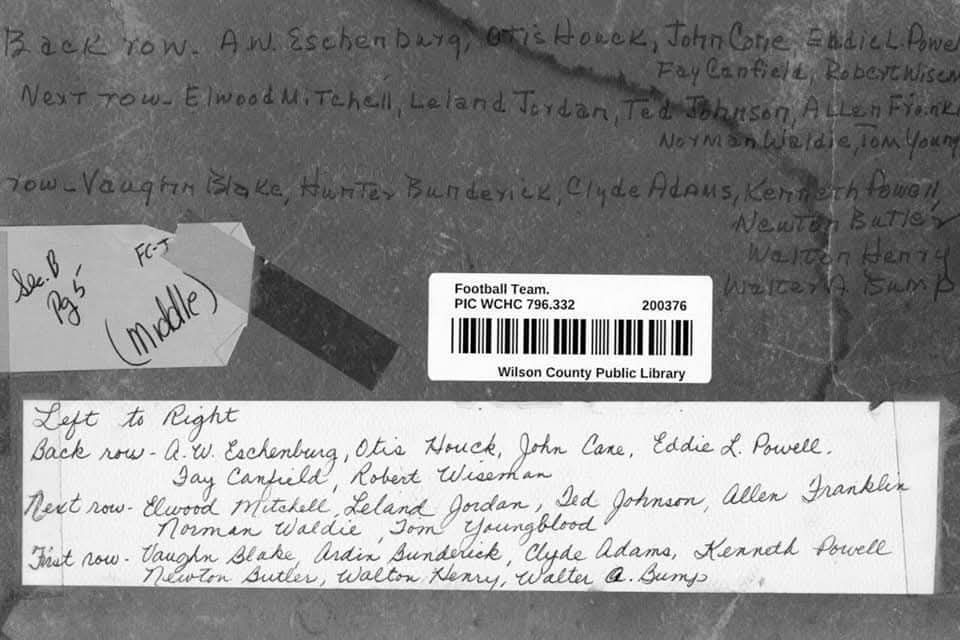 Back row - A.W. Eschenburg, Otis Houck, John Cane, Eddie L. Powe
Fay Canfield, Robert Wisem
Next row - Elwood Mitchell, Leland Jordan, Ted Johnson, Allen Frankl
Norman Waldie, Tom Young
row - Vaughn Blake, Hunter Bunderick, Clyde Adams, Kenneth Powell,
Newton Butler
Walton Henry
Walter A Bump
Sec. B
Pg 5
FC-J
(Middle)
Football Team.
PIC WCHC 796.332 200376
Wilson County Public Library
Left to Right
Back row - A. W. Eschenburg, Otis Houck, John Cane, Eddie L. Powell.
Fay Canfield, Robert Wiseman
Next row - Elwood Mitchell, Leland Jordan, Ted Johnson, Allen Franklin
Norman Waldie, Tom Youngblood
First row - Vaughn Blake, Ardin Bunderick, Clyde Adams, Kenneth Powell
Newton Butler, Walton Henry, Walter A. Bump